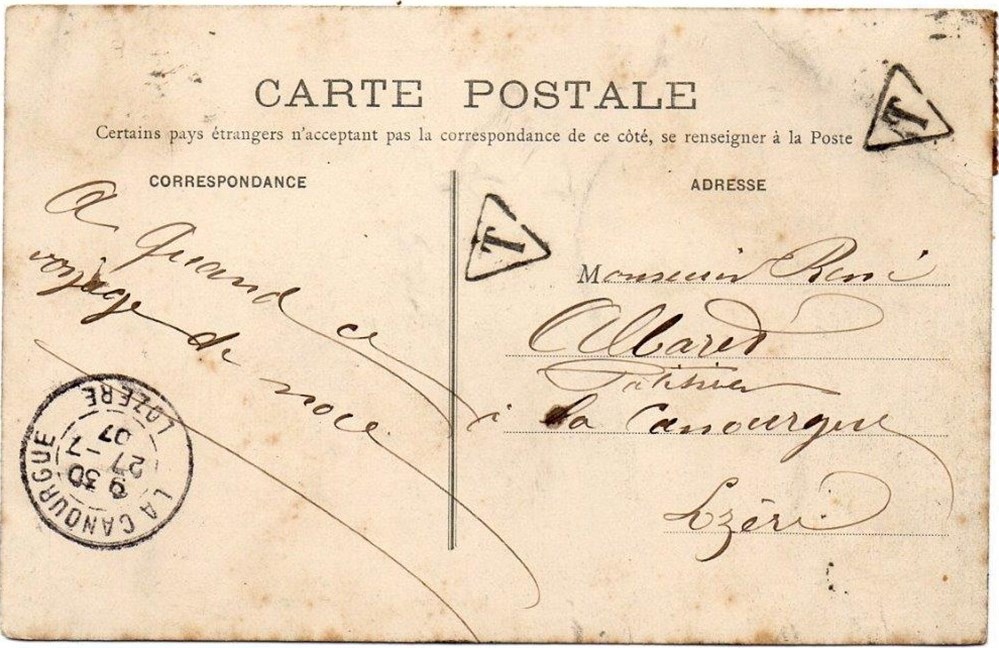 CARTE POSTALE
Certains pays étrangers n'acceptant pas la correspondance de ce côté, se renseigner à la Poste
T
CORRESPONDANCE
A quand ce
voyage de noce
LA CANOURGUE
9 30
27 -7
07
LOZÈRE
T
ADRESSE
Monsieur René
Albaret
Patissier
à La Canourgue
Lozère